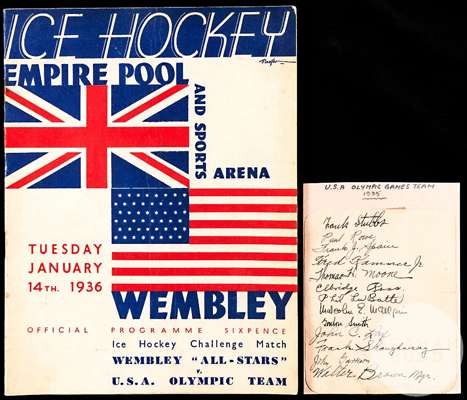 ICE HOCKEY
EMPIRE POOL
AND SPORTS
ARENA
TUESDAY
JANUARY
14TH. 1936
WEMBLEY
OFFICIAL PROGRAMME SIXPENCE
Ice Hockey Challenge Match
WEMBLEY "ALL-STARS"
v.
U.S.A. OLYMPIC TEAM
U.S.A OLYMPIC GAMES TEAM
Frank Stubbs
Paul Rowe
Frank J. Spain
Fred Kammer Jr
Thomas H. Moone
Elbridge Ross
Phil LaBatte
Malcolm E. McAlpin
Gordon Smith
John C. Lax
Frank Shaughnessy
John Garrison
Walter Brown Mgr.